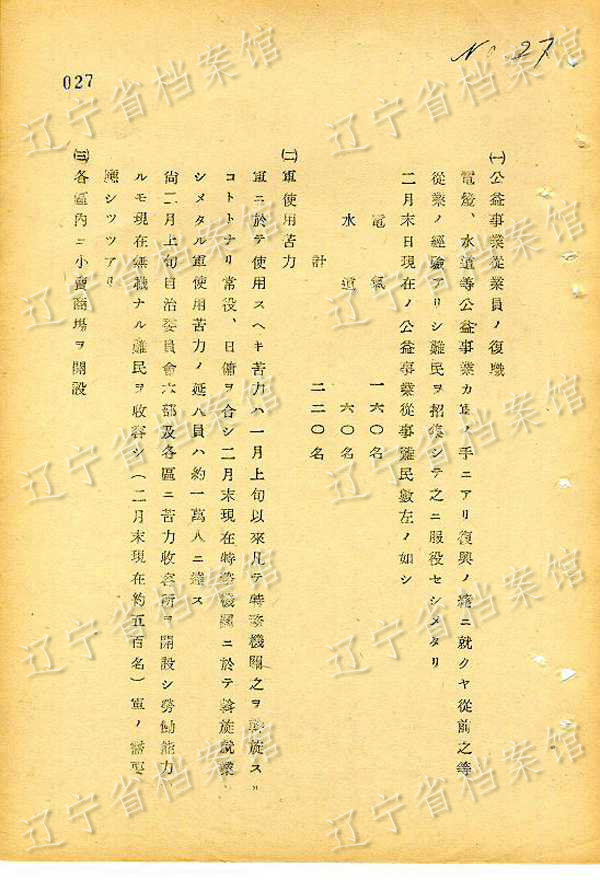 No 27
027
㈠ 公益事業從業員ノ復職
電燈、水道等公益事業カ軍ノ手ニアリ復興ノ緒ニ就クヤ從前之等
從業ノ經驗アリシ難民ヲ招集シテ之ニ服役セシメタリ
二月末日現在ノ公益事業從事難民數左ノ如シ
電氣 一六〇名
水道 六〇名
計 二二〇名
㈡ 軍使用苦力
軍ニ於テ使用スヘキ苦力ハ一月上旬以來凡テ特務機關之ヲ斡旋スル
コトトナリ常役、日傭ヲ合シ二月末現在特務機關ニ於テ斡旋就業
シメタル軍使用苦力ノ延人員ハ約一萬人ニ達ス
尚二月上旬自治委員會本部及各區ニ苦力收容所ヲ開設シ勞働能力
ルモ現在無職ナル難民ヲ收容シ(二月末現在約五百名)軍ノ需要
應シツツアリ
㈢ 各區內ニ小賣商場ヲ開設
辽宁省档案馆
辽宁省档案馆
辽宁省档案馆
辽宁省档案馆
辽宁省档案馆
辽宁省档案馆
辽宁省档案馆
辽宁省档案馆
辽宁省档案馆
辽宁省档案馆